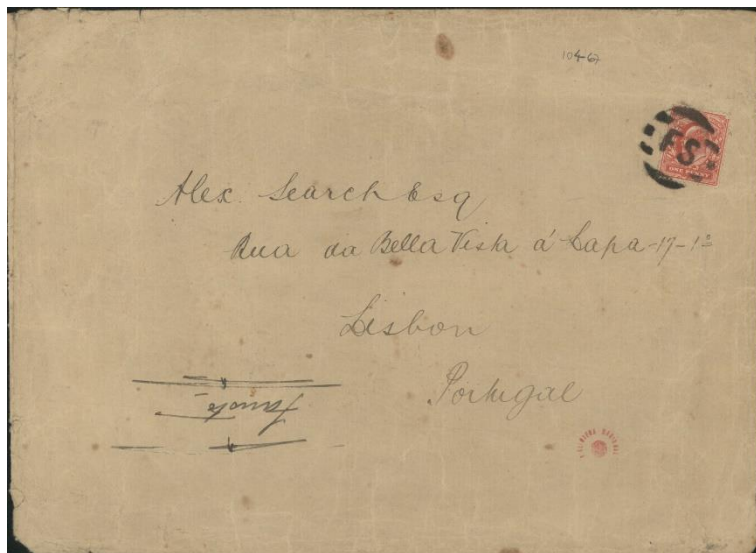 FS
ONE PENNY
Alex. Search Esq
Rua da Bella Vista á Lapa-17-1º
Lisbon
Portugal